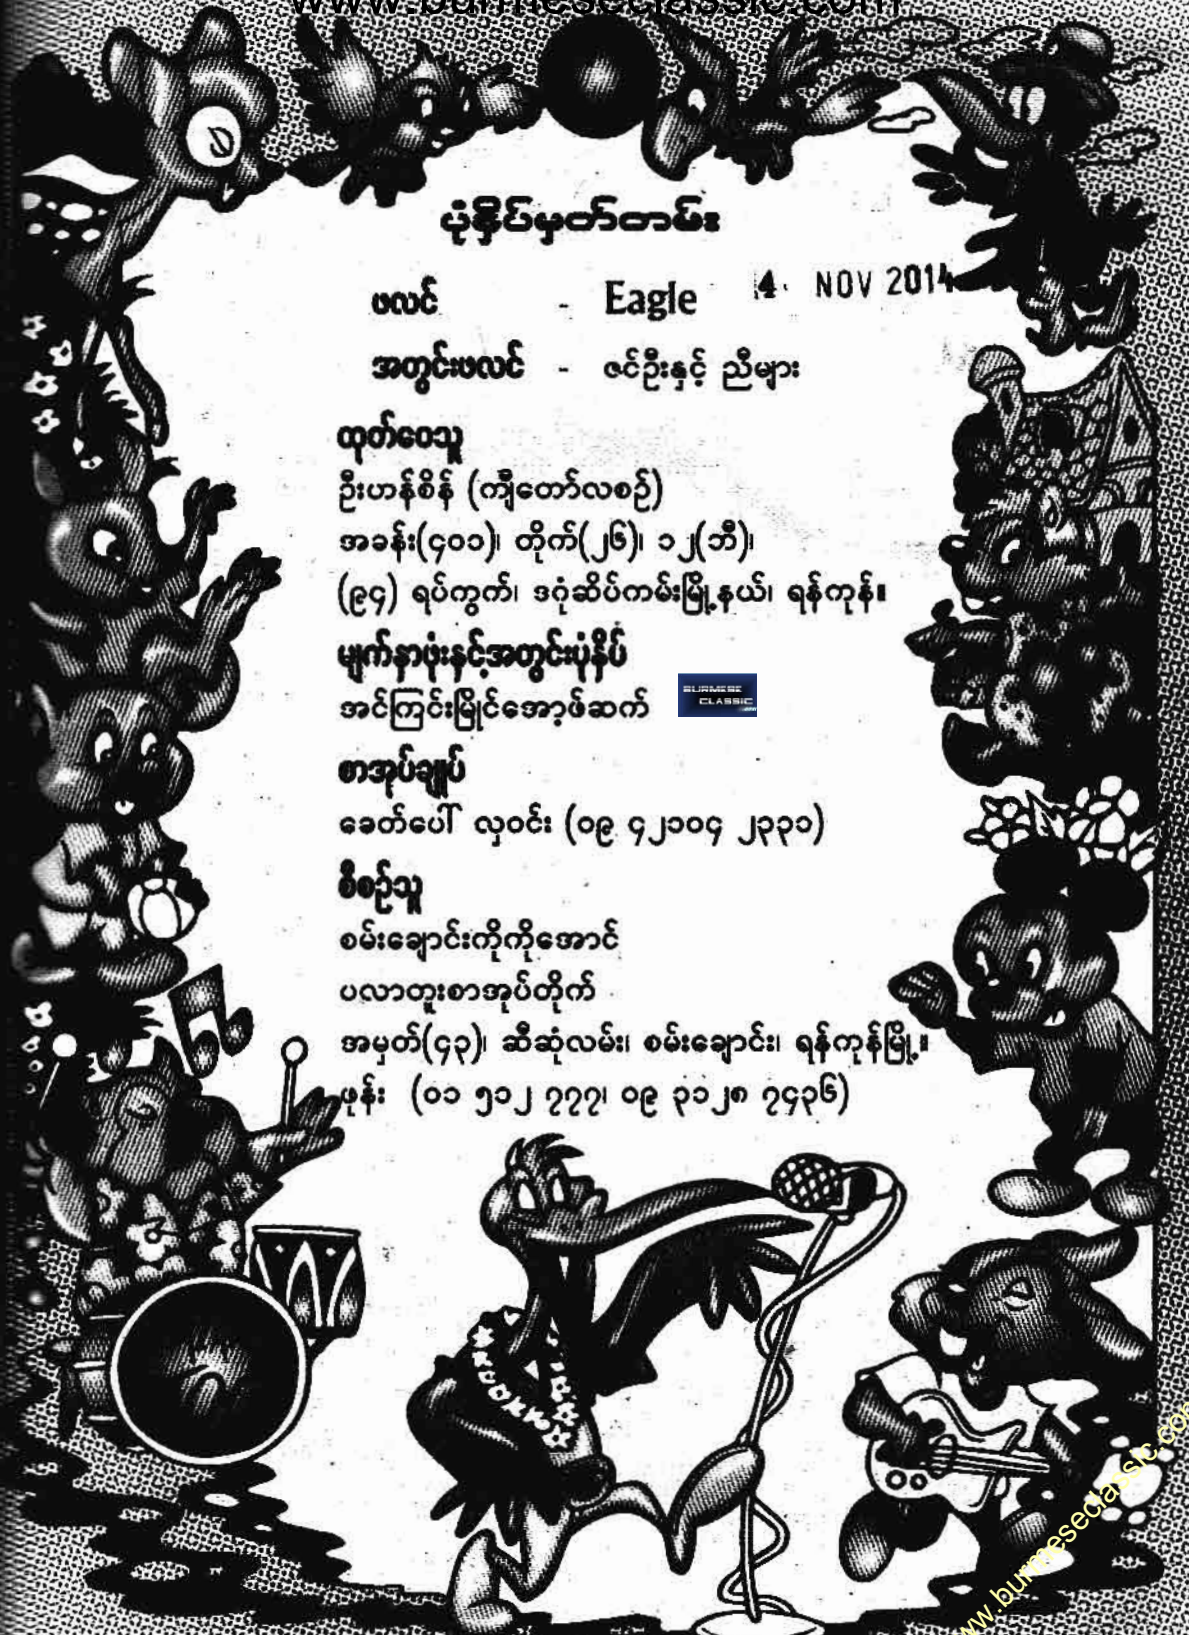 www.burmeseclassic.com
ပုံနှိပ်မှတ်တမ်း
4 NOV 2014
ဖလင် - Eagle
အတွင်းဖလင် - ဇင်ဦးနှင့် ညီများ
ထုတ်ဝေသူ
ဦးဟန်စိန် (ကျီတော်လစဉ်)
အခန်း(၄၀၁)၊ တိုက်(၂၆)၊ ၁၂(ဘီ)၊
(၉၄) ရပ်ကွက်၊ ဒဂုံဆိပ်ကမ်းမြို့နယ်၊ ရန်ကုန်။
မျက်နှာဖုံးနှင့်အတွင်းပုံနှိပ်
အင်ကြင်းမြိုင်အော့ဖ်ဆက်
BURMESE
CLASSIC
.com
စာအုပ်ချုပ်
ခေတ်ပေါ် လှဝင်း (၀၉ ၄၂၁၀၄ ၂၃၃၁)
စီစဉ်သူ
စမ်းချောင်းကိုကိုအောင်
ပလာတူးစာအုပ်တိုက်
အမှတ်(၄၃)၊ ဆီဆုံလမ်း၊ စမ်းချောင်း၊ ရန်ကုန်မြို့။
ဖုန်း (၀၁ ၅၁၂ ၇၇၇၊ ၀၉ ၃၁၂၈ ၇၄၃၆)
www.burmeseclassic.com